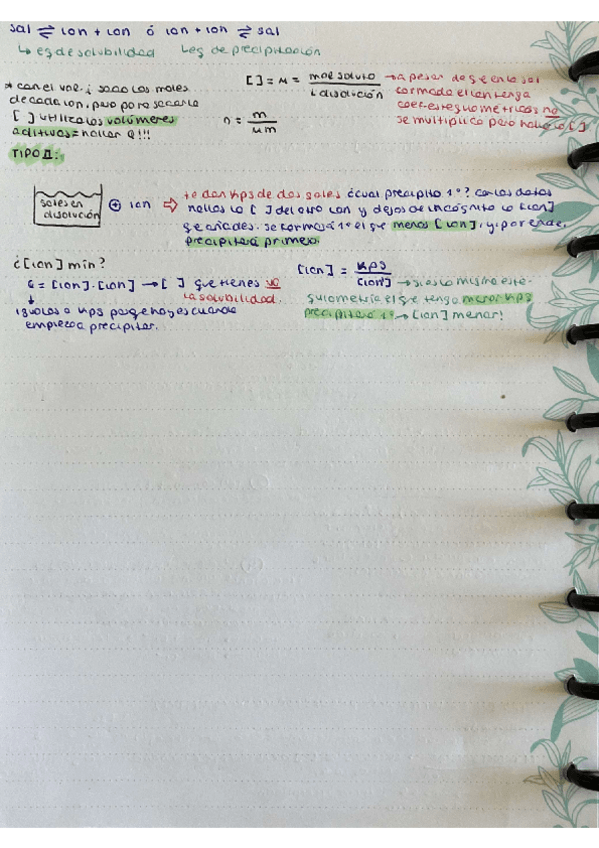 sal ⇌ ion + ion ó ion + ion ⇌ sal
↳ eq de solubilidad ↳ eq de precipitación
* con el vol. i saco los moles
de cada ion, pero para sacar la
[ ] utilizo los volúmenes
aditivos = hallar Q!!!
[ ] = M = mol soluto / L disolución → a pesar de q en la sal
formada el ion tenga
coef. estequiométricos no
se multiplica para hallar la [ ]
n = m / Mm
TIPO II:
sales en
disolución
⊕ ion ⇨ te dan Kps de dos sales ¿cual precipita 1º? con los datos
hallas la [ ] del otro ion y dejas de incógnita la [ion]
q añades. se formará 1º el q menos [ion], y por ende,
precipitará primero.
¿[ion] min?
Q = [ion]·[ion] → [ ] que tienes no
la solubilidad.
↓
igualas a Kps porque hay es cuando
empieza a precipitar.
[ion] = Kps / [ion] → si es la misma este-
quiometría el que tenga menor Kps
precipitará 1º → [ion] menor!